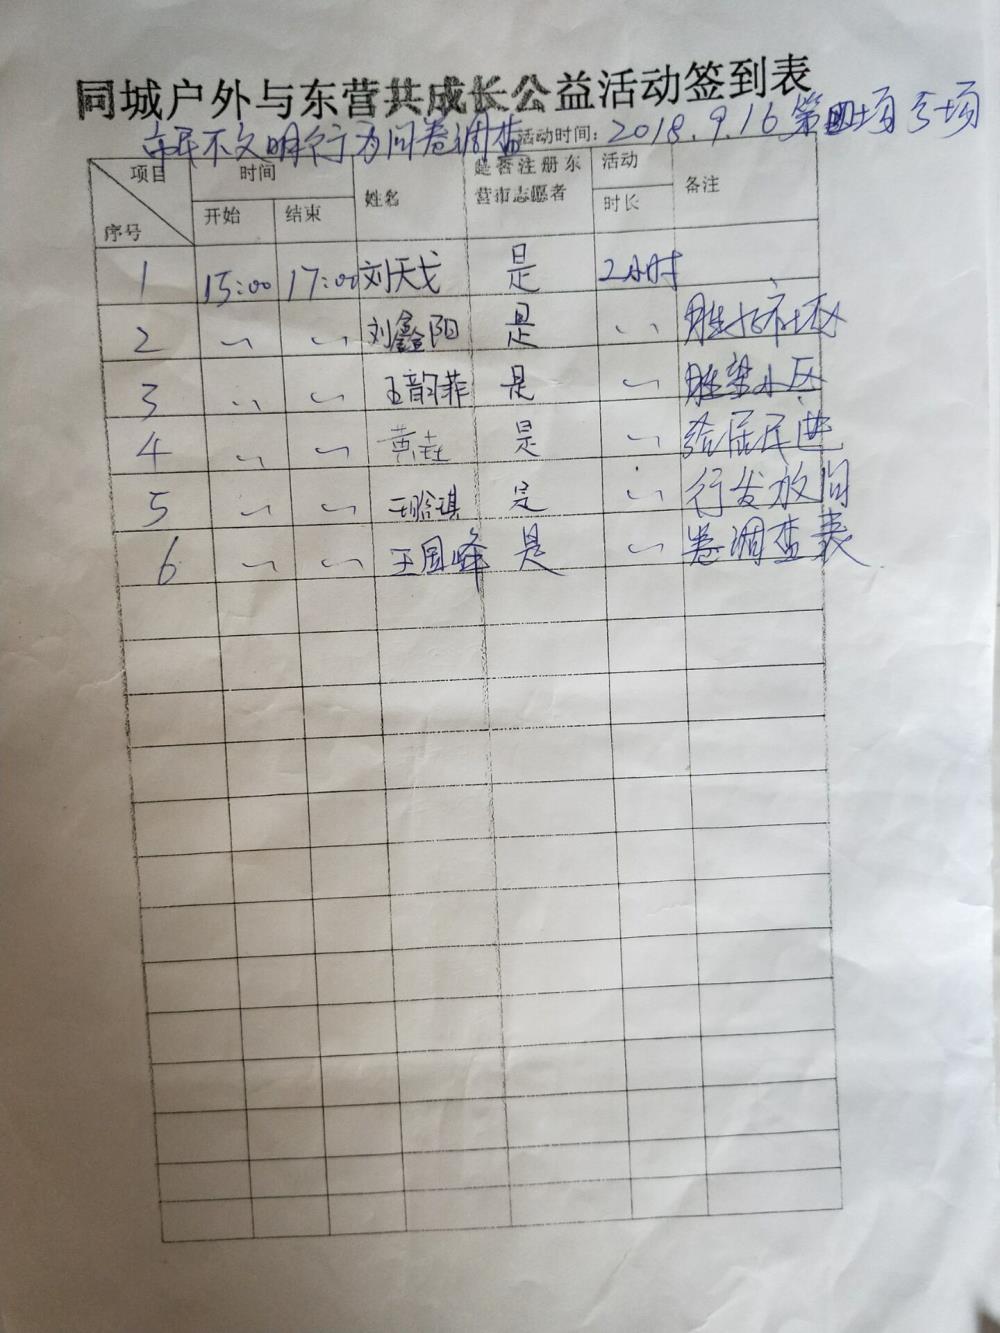 同城户外与东营共成长公益活动签到表
市民不文明行为问卷调查 活动时间: 2018.9.16 第四场
项目 时间 姓名 是否注册东营市志愿者 活动时长 备注
序号 开始 结束
1 15:00 17:00 刘天戈 是 2小时
2 〃 〃 刘鑫阳 是 〃
3 〃 〃 王韵菲 是 〃 胜望小区
4 〃 〃 黄垚 是 〃 给居民进
5 〃 〃 是 〃 行发放问
6 〃 〃 王国峰 是 〃 卷调查表